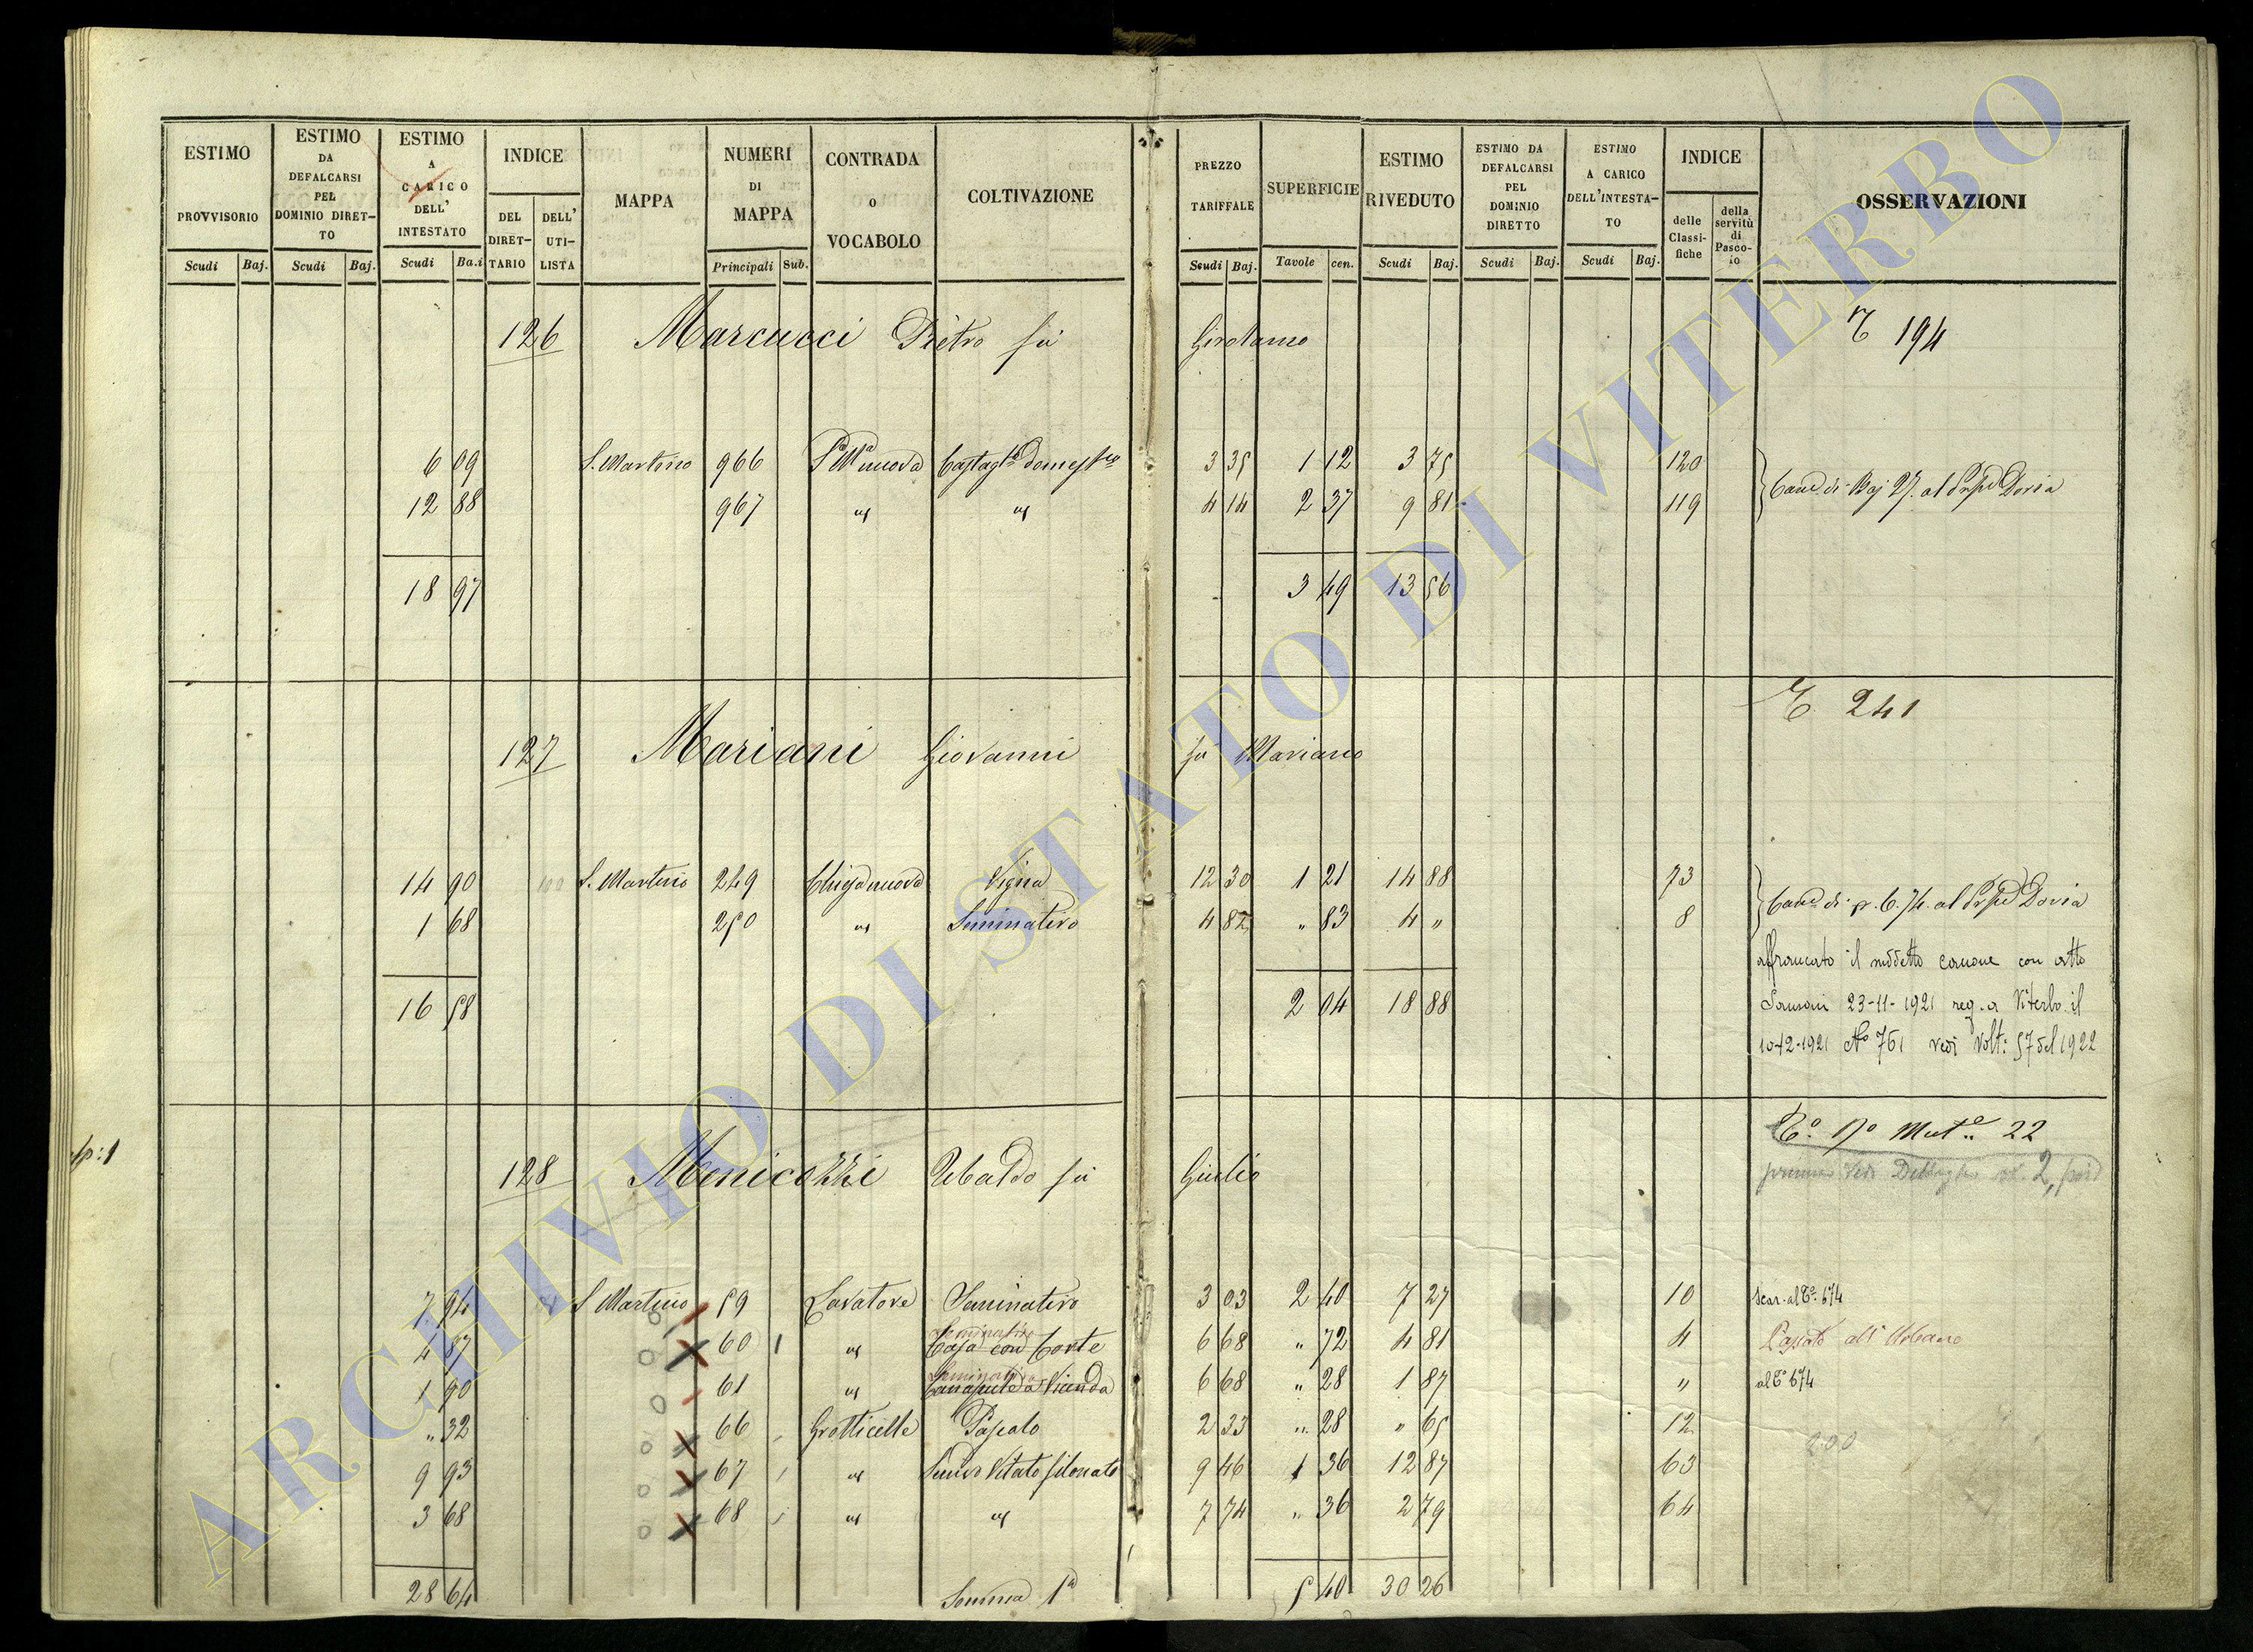 ESTIMO PROVVISORIO Scudi Baj.
ESTIMO DA DEFALCARSI PEL DOMINIO DIRET-TO Scudi Baj.
ESTIMO A CARICO DELL' INTESTATO Scudi Ba.i
INDICE DEL DIRET-TARIO DELL' UTI-LISTA
MAPPA
NUMERI DI MAPPA Principali Sub.
CONTRADA O VOCABOLO
COLTIVAZIONE
PREZZO TARIFFALE Scudi Baj.
SUPERFICIE Tavole cen.
ESTIMO RIVEDUTO Scudi Baj.
ESTIMO DA DEFALCARSI PEL DOMINIO DIRETTO Scudi Baj.
ESTIMO A CARICO DELL'INTESTA-TO Scudi Baj.
INDICE delle Classi-fiche della servitù di Pasco-io
OSSERVAZIONI
126 Marcucci Pietro fù Girolamo 194
6 09 S. Martino 966 3 35 1 12 3 75 120
12 88 967 " " 4 14 2 37 9 81 119
Cane di Baj 27. al Doria
18 97 3 49 13 56
127 Mariani Giovanni fù Mariano 241
14 90 S. Martino 249 Vigna 12 30 1 21 14 88 73
1 68 250 " Seminativo 4 82 " 83 4 " 8
Cane di 6.74. al Doria
affrancato il suddetto canone con atto
16 58 2 04 18 88
Sansoni 23-11-1921 reg. a Viterbo il
10-12-1921 No 761 vedi Volt: 57 del 1922
128 Menicozzi Ubaldo fù Giulio
22
7 94 S Martino 59 Lavatore Seminativo 3 03 2 40 7 27 10 Scar. al 674
4 87 60 1 " Seminativo Casa con Corte 6 68 " 72 4 81 4 Passato all' Urbano
1 90 61 " 6 68 " 28 1 87 " al 674
" 32 66 Grotticelle Pascolo 2 33 " 28 " 65 12
9 93 67 " Semvo Vitato filonato 9 46 1 36 12 87 63
3 68 68 " " 7 74 " 36 2 79 64
28 64 Somma 1a 5 40 30 26
ARCHIVIO DI STATO DI VITERBO